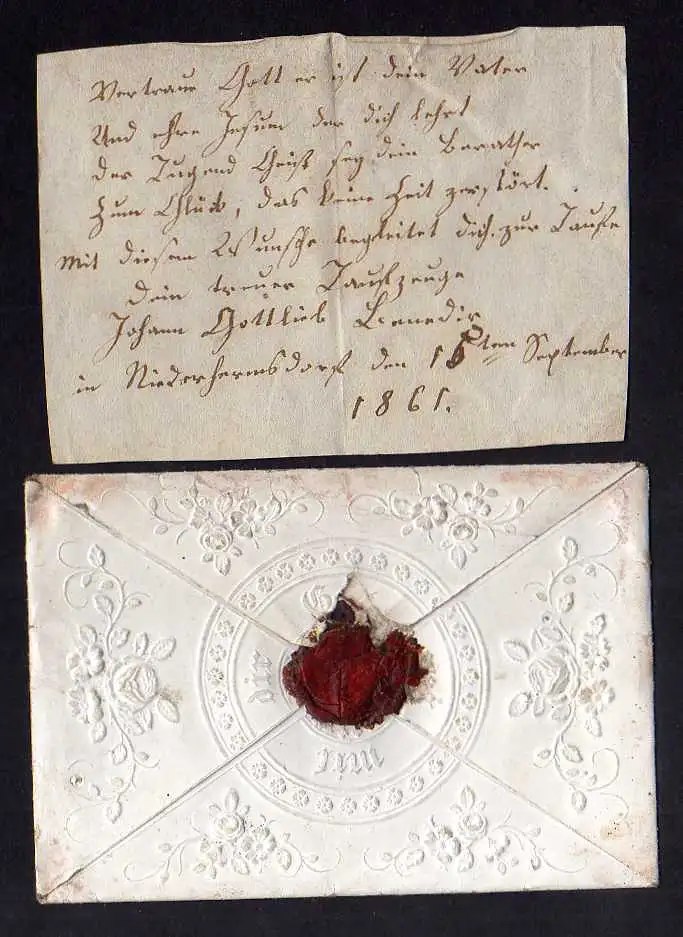 Vertraue Gott er ist dein Vater
Und ehre Jesum der dich lehrt
der Tugend Geist sey dein Berather
Zum Glück, das keine Zeit zerstört.
Mit diesem Wunsche begleitet dich zur Taufe
Dein treuer Taufzeuge
Johann Gottlieb
in Niederhermsdorf den ten September
1861.
G
mit
dir